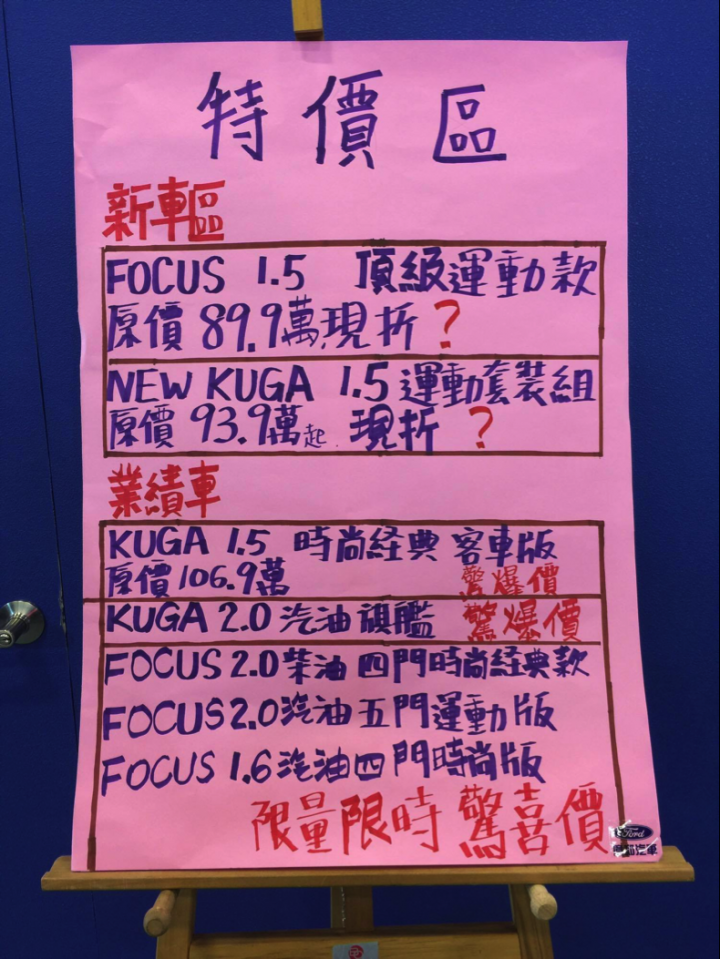 特價區
新車區
FOCUS 1.5 頂級運動款
原價 89.9萬,現折?
NEW KUGA 1.5 運動套裝組
原價 93.9萬起. 現折 ?
業績車
KUGA 1.5 時尚経典 客車版
原價106.9萬 驚爆價
KUGA 2.0 汽油旗艦 驚爆價
FOCUS 2.0柴油 四門時尚経典款
FOCUS 2.0汽油 五門運動版
FOCUS 1.6汽油四門時尚版
限量限時 驚喜價
Ford